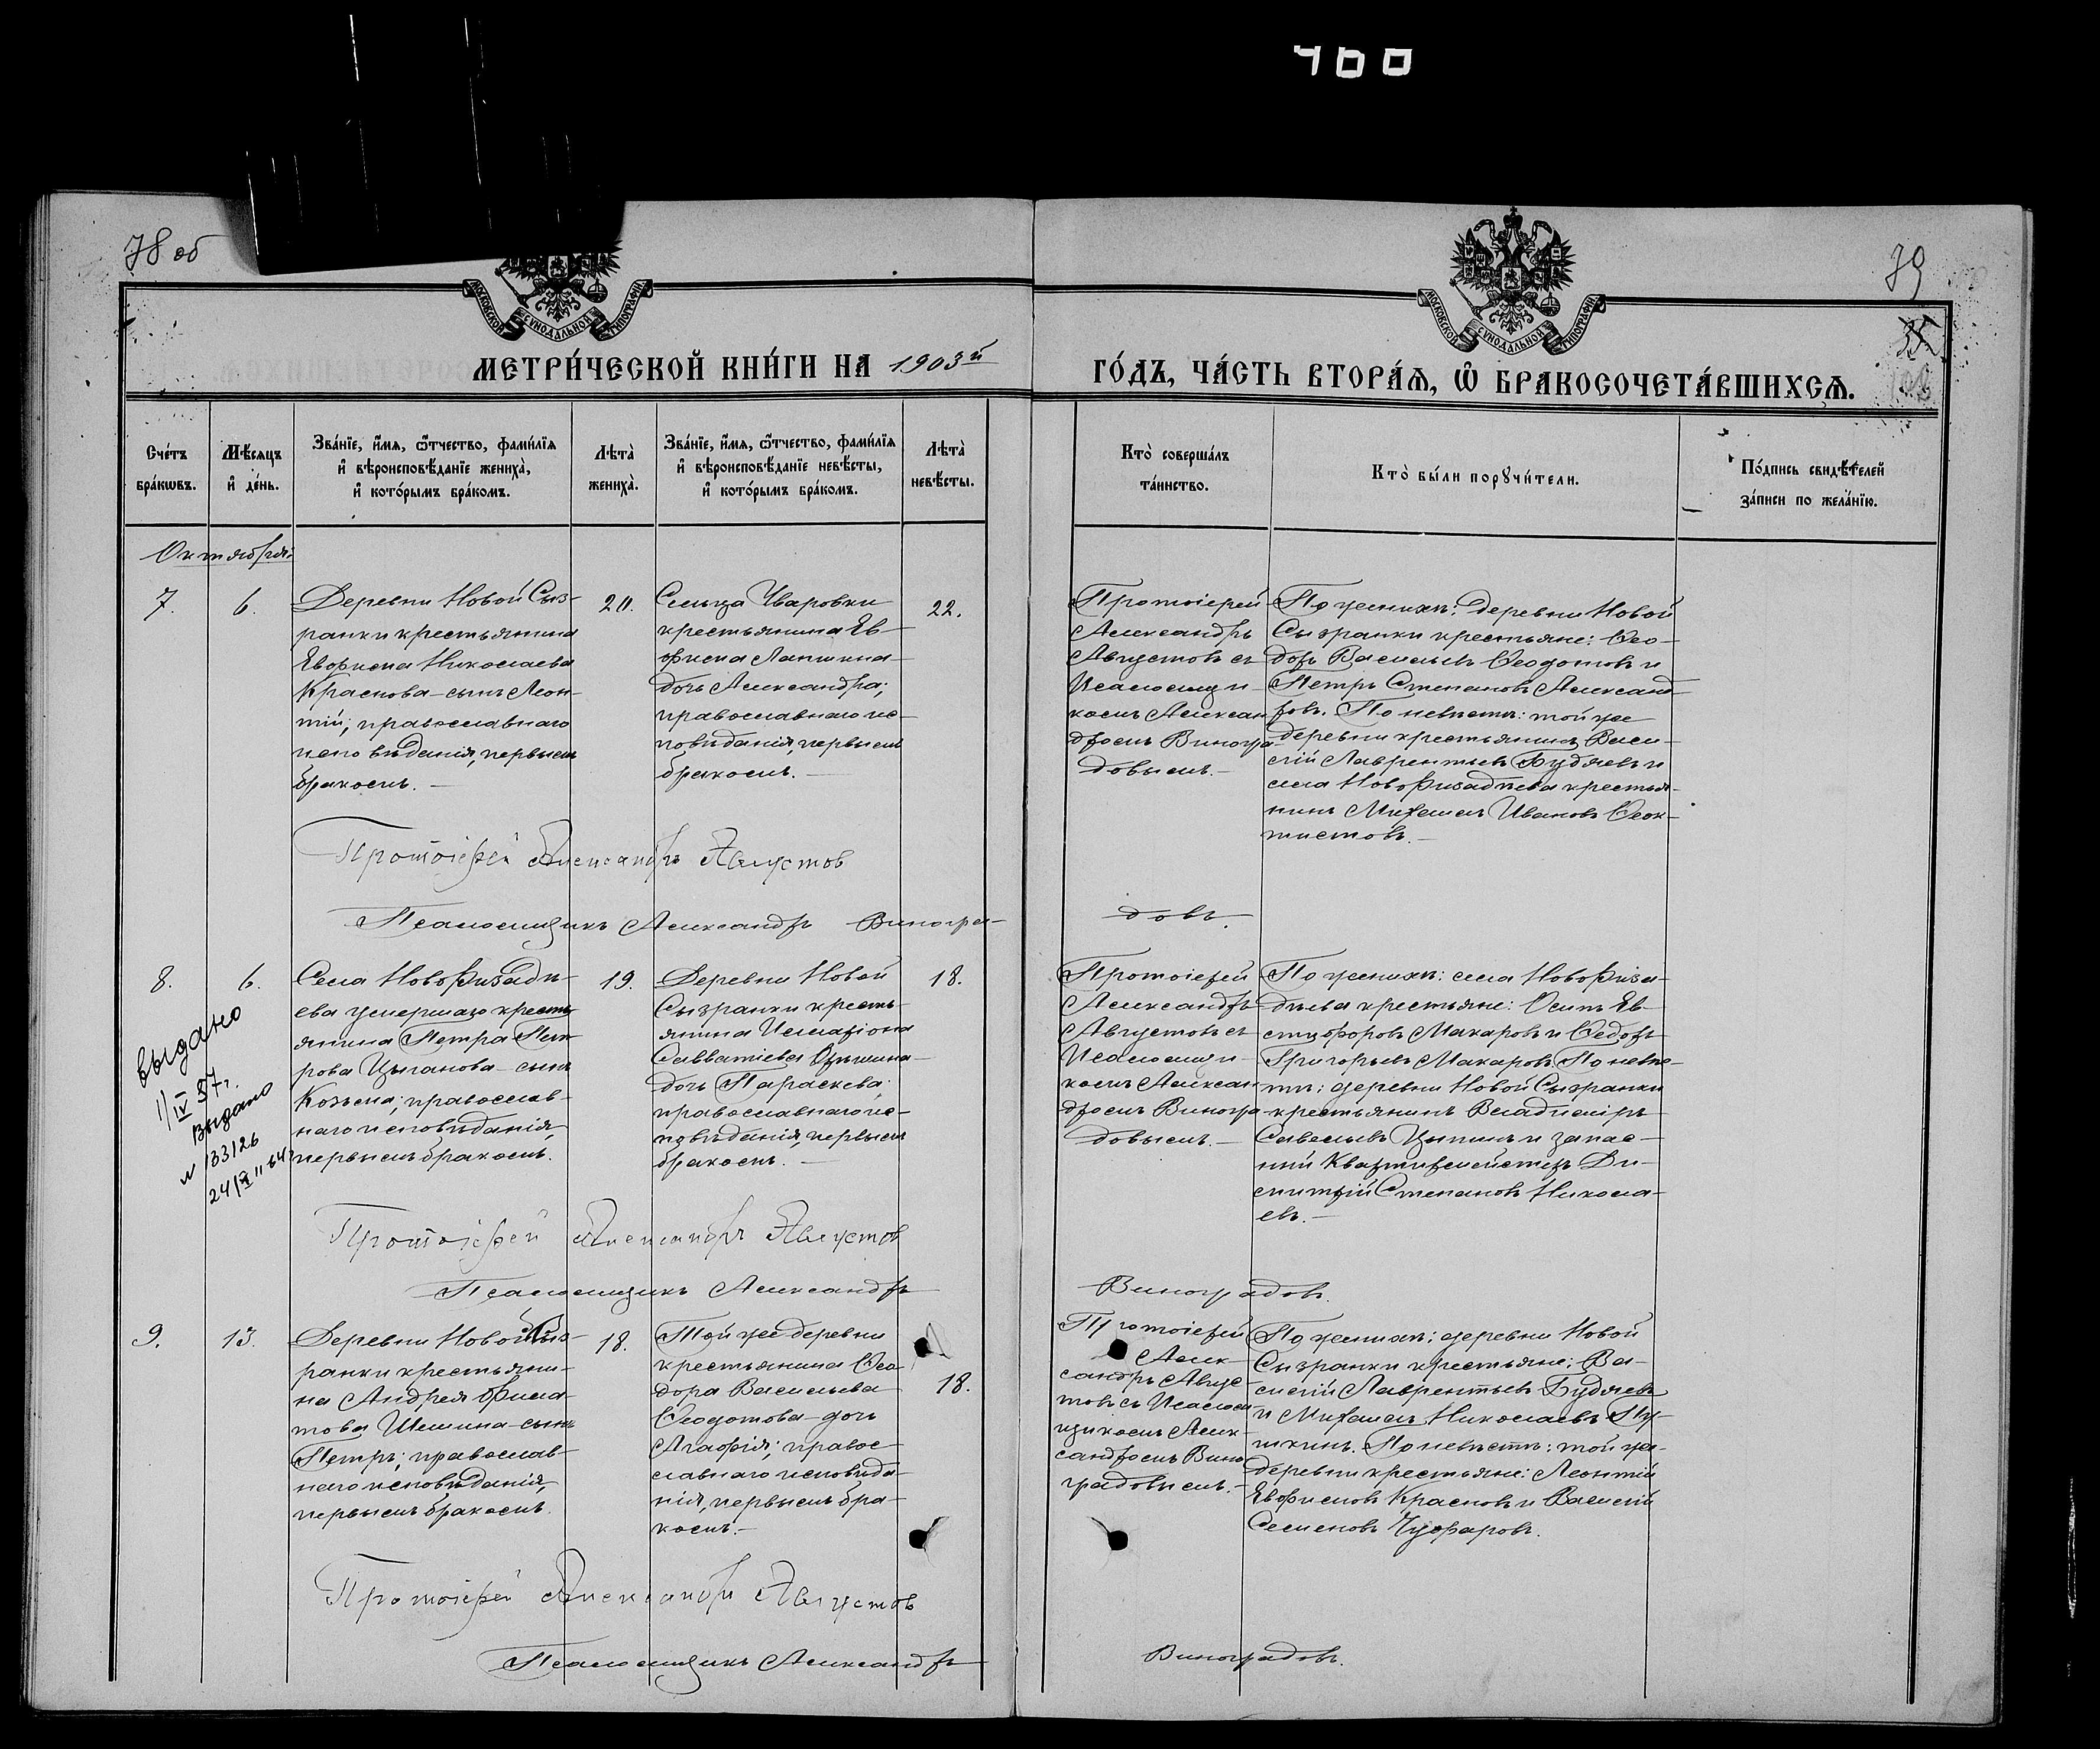 400
78 об
79
35
МОСКОВСКОЙ СѴНОДАЛЬНОЙ ТИПОГРАФІИ
МОСКОВСКОЙ СѴНОДАЛЬНОЙ ТИПОГРАФІИ
МЕТРИ́ЧЕСКОЙ КНИ́ГИ НА 1903й
ГО́ДЪ, ЧА́СТЬ ВТОРА́Ѧ, Ѡ҆ БРАКОСОЧЕТА́ВШИХСѦ.
Сче́тъ
бра́кѡвъ.
Мѣ́сяцъ
и҆ де́нь.
Зва́нїе, и҆́мя, ѻ҆́тчество, фами́лїя
и҆ вѣроисповѣ́данїе жениха̀,
и҆ кото́рымъ бра́комъ.
Лѣта̀
жениха̀.
Зва́нїе, и҆́мя, ѻ҆́тчество, фами́лїя
и҆ вѣроисповѣ́данїе невѣ́сты,
и҆ кото́рымъ бра́комъ.
Лѣта̀
невѣ́сты.
Кто̀ соверша́лъ
та́инство.
Кто̀ бы́ли порꙋчи́тели.
По́дпись свидѣ́телей
за́писи по жела́нїю.
Октября
7.
6.
Деревни Новой Сыз-
ранки крестьянина
Евфима Николаева
Краснова-сынъ Леон-
тій; православнаго
исповѣданія, первымъ
бракомъ.
20.
Сельца Уваровки
крестьянина Ев-
фима Лапшина-
дочь Александра;
православнаго ис-
повѣданія, первымъ
бракомъ.
22.
Протоіерей
Александръ
Августовъ съ
Псаломщи-
комъ Алексан
дромъ Виногра-
довымъ.
По женихѣ: деревни Новой
Сызранки крестьяне: Ѳео-
доръ Васильевъ Ѳеодотовъ и
Петръ Степановъ Александ-
ровъ. По невѣстѣ: той же
деревни крестьянинъ Васи-
лій Лаврентьевъ Будяевъ и
села Новофизадѣева крестья-
нинъ Михаилъ Ивановъ Ѳеок-
тистовъ.
Протоіерей Александръ Августов
Псаломщикъ Александръ Виногра-
довъ.
8.
6.
Села Новофизадѣ-
ева умершаго кресть-
янина Петра Пет-
рова Цыганова-сынъ
Козьма; православ-
наго исповѣданія,
первымъ бракомъ.
19.
Деревни Новой
Сызранки кресть-
янина Иларіона
Савватіева
дочь Параскева;
православнаго ис-
повѣданія, первымъ
бракомъ.
18.
Протоіерей
Александръ
Августовъ съ
Псаломщи-
комъ Алексан
дромъ Виногра-
довымъ.
По женихѣ: села Новофиза-
дѣева крестьяне: Осипъ Ев-
стафоровъ Макаровъ и Ѳедоръ
Григорьевъ Макаровъ. По невѣс-
тѣ: деревни Новой Сызранки
крестьянинъ Владиміръ
Савельевъ Цыпинъ и запас-
ный Квартирмейстеръ Ди-
митрій Степановъ Никола-
евъ.
выдано
1/IV 57г.
Выдано
№ 133126
Протоіерей Александръ Августов
Псаломщикъ Александръ
Виноградовъ.
9.
13.
Деревни Новой Сыз-
ранки крестьяни-
на Андрея Фила-
това Шишина-сынъ
Петръ; православ-
наго исповѣданія,
первымъ бракомъ.
18.
Той же деревни
крестьянина Ѳео-
дора Васильева
Ѳеодотова-дочь
Агафія; право-
славнаго исповѣда-
нія, первымъ бра-
комъ.
18.
Протоіерей
Алек-
сандръ Авгус-
товъ съ Псалом
щикомъ Алек-
сандромъ Вино
градовымъ.
По женихѣ: деревни Новой
Сызранки крестьяне: Ва-
силій Лаврентьевъ Будяевъ
и Михаилъ Николаевъ Пу-
шкинъ. По невѣстѣ: той же
деревни крестьяне: Леонтій
Евфимовъ Красновъ и Василій
Семеновъ Чуфаровъ.
Протоіерей Александръ Августов
Псаломщикъ Александръ
Виноградовъ.